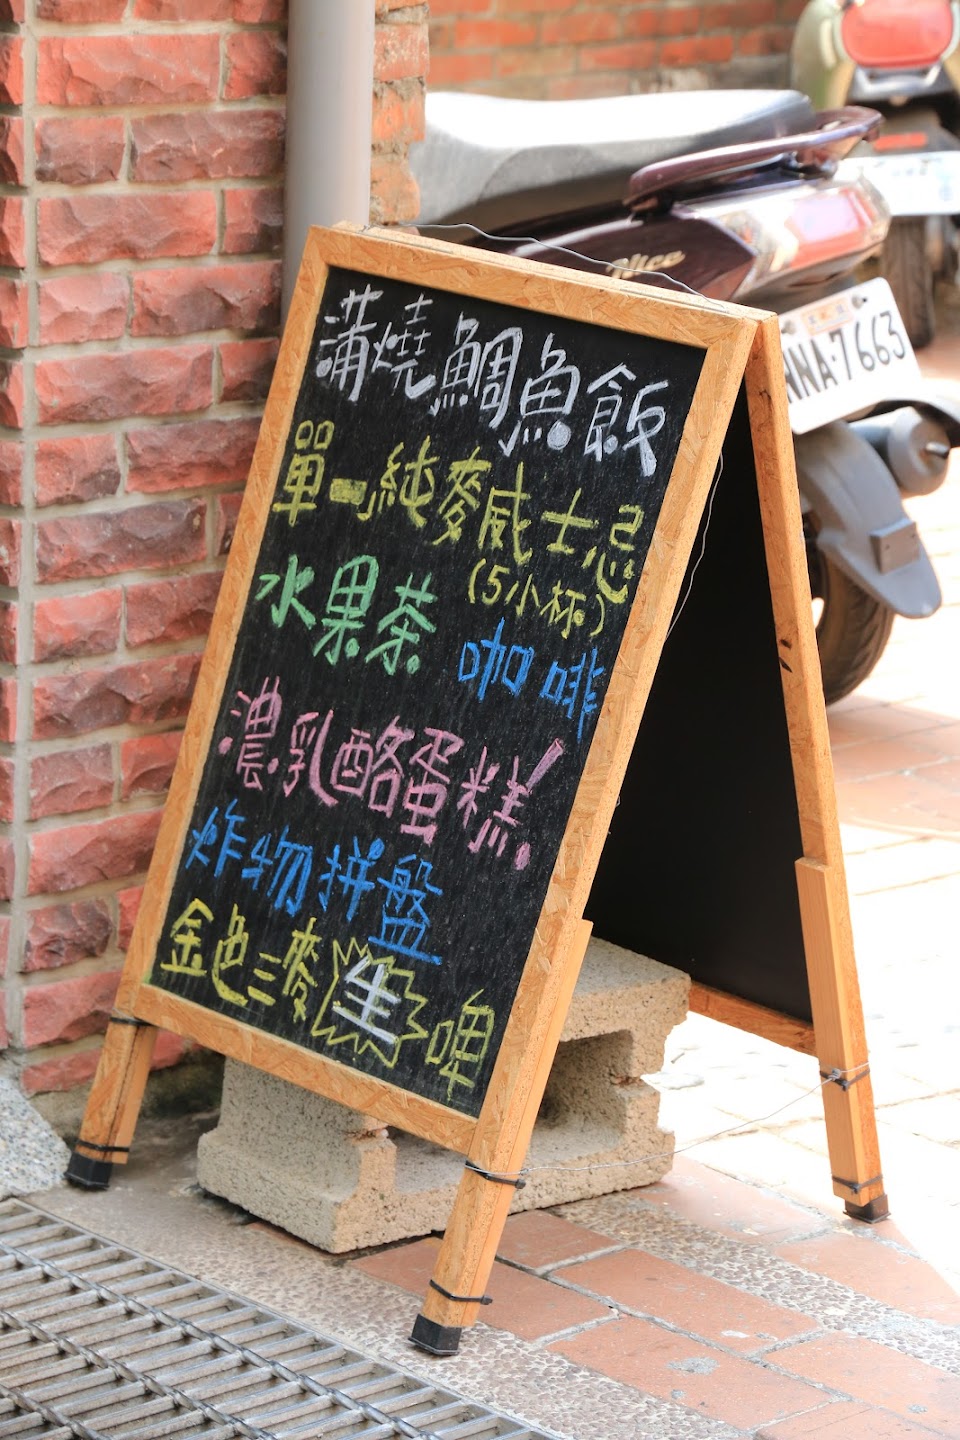 蒲燒鯛魚飯
單一純麥威士忌
(5小杯)
水果茶
咖啡
濃乳酪蛋糕!
炸物拼盤
金色三麥生啤
Alice
NNA-7663